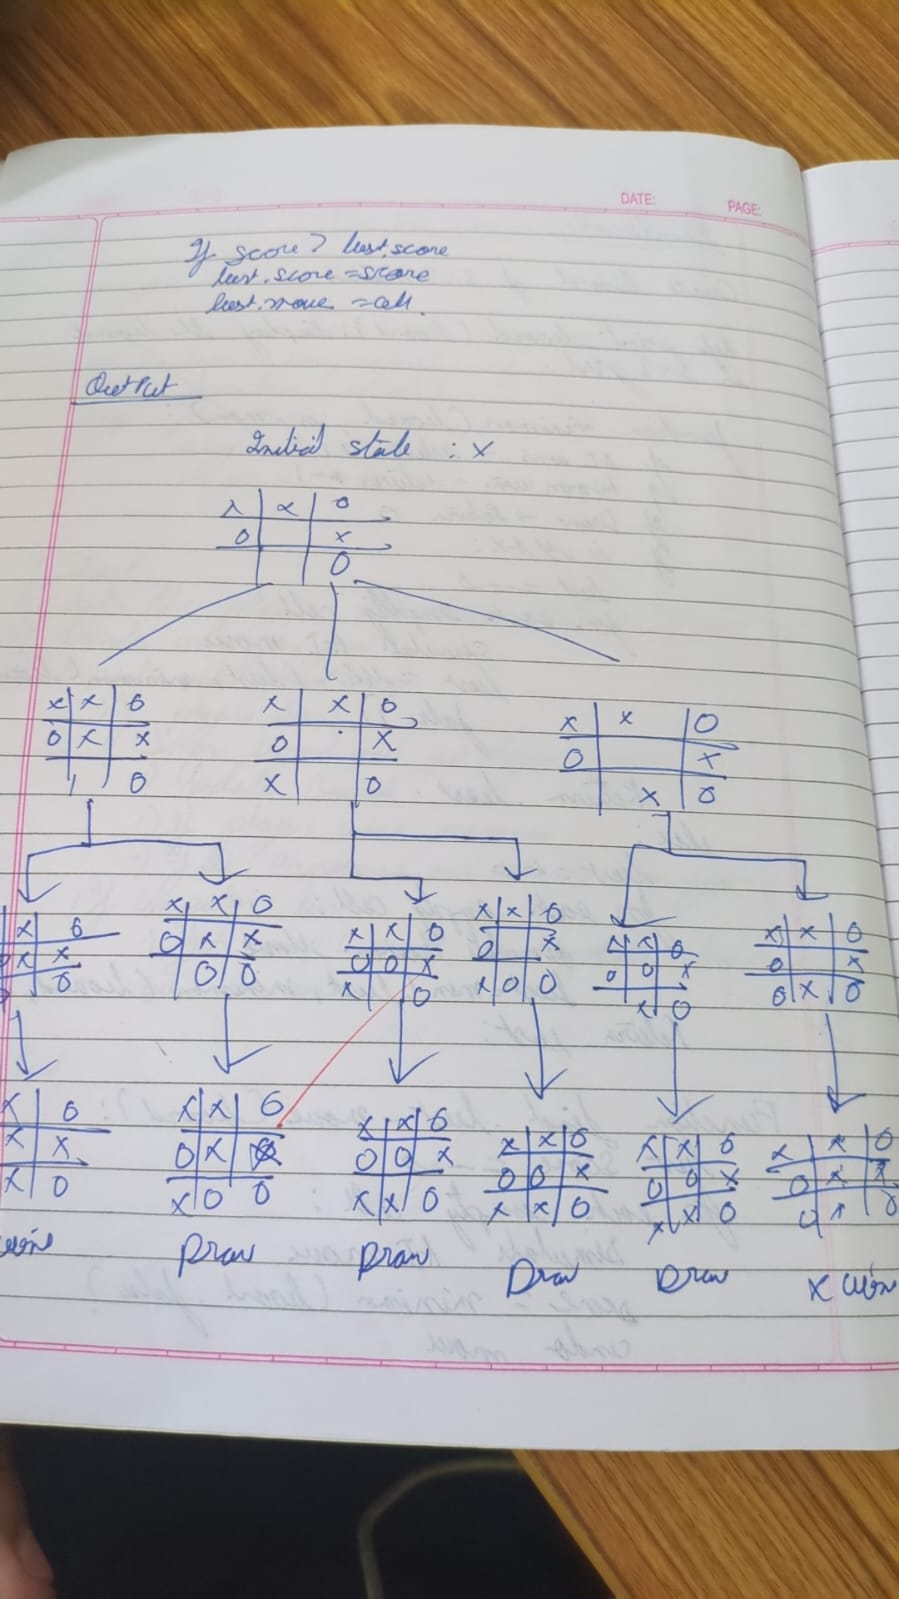 DATE:
PAGE:
If score > best.score
best.score = score
best.move = cell.
Output
Initial state : X
X | X | O
O | | X
| | O
X | X | O
O | X | X
| | O
X | X | O
O | | X
X | | O
X | X | O
O | | X
| X | O
X | O
X | X
O
X | X | O
O | X | X
| O | O
X | X | O
O | O | X
X | | O
X | X | O
O | | X
X | O | O
X | X | O
O | O | X
| X | O
X | X | O
O | | X
O | X | O
X | O
X | X
X | O
X | X | O
O | X |
X | O | O
X | X | O
O | O | X
X | X | O
X | X | O
O | O | X
X | X | O
X | X | O
O | O | X
X | X | O
X | X | O
O | X | X
O | X | O
Draw
Draw
Draw
Draw
X win